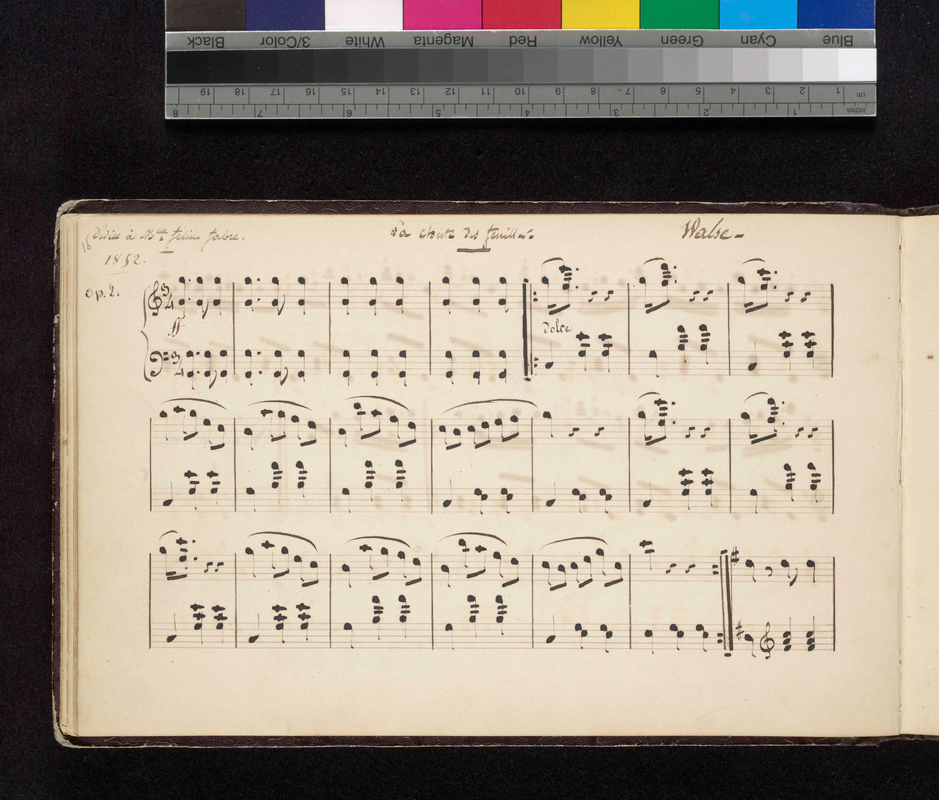 Black 3/Color White Magenta Red Yellow Green Cyan Blue
19 18 17 16 15 14 13 12 11 10 9 8 7 6 5 4 3 2 1 cm
8 7 6 5 4 3 2 1 inches
Dediée à Melle Felicie Fabre. La chute des feuilles Walse
1852.
op. 2.
3/4
ff
dolce
3/4